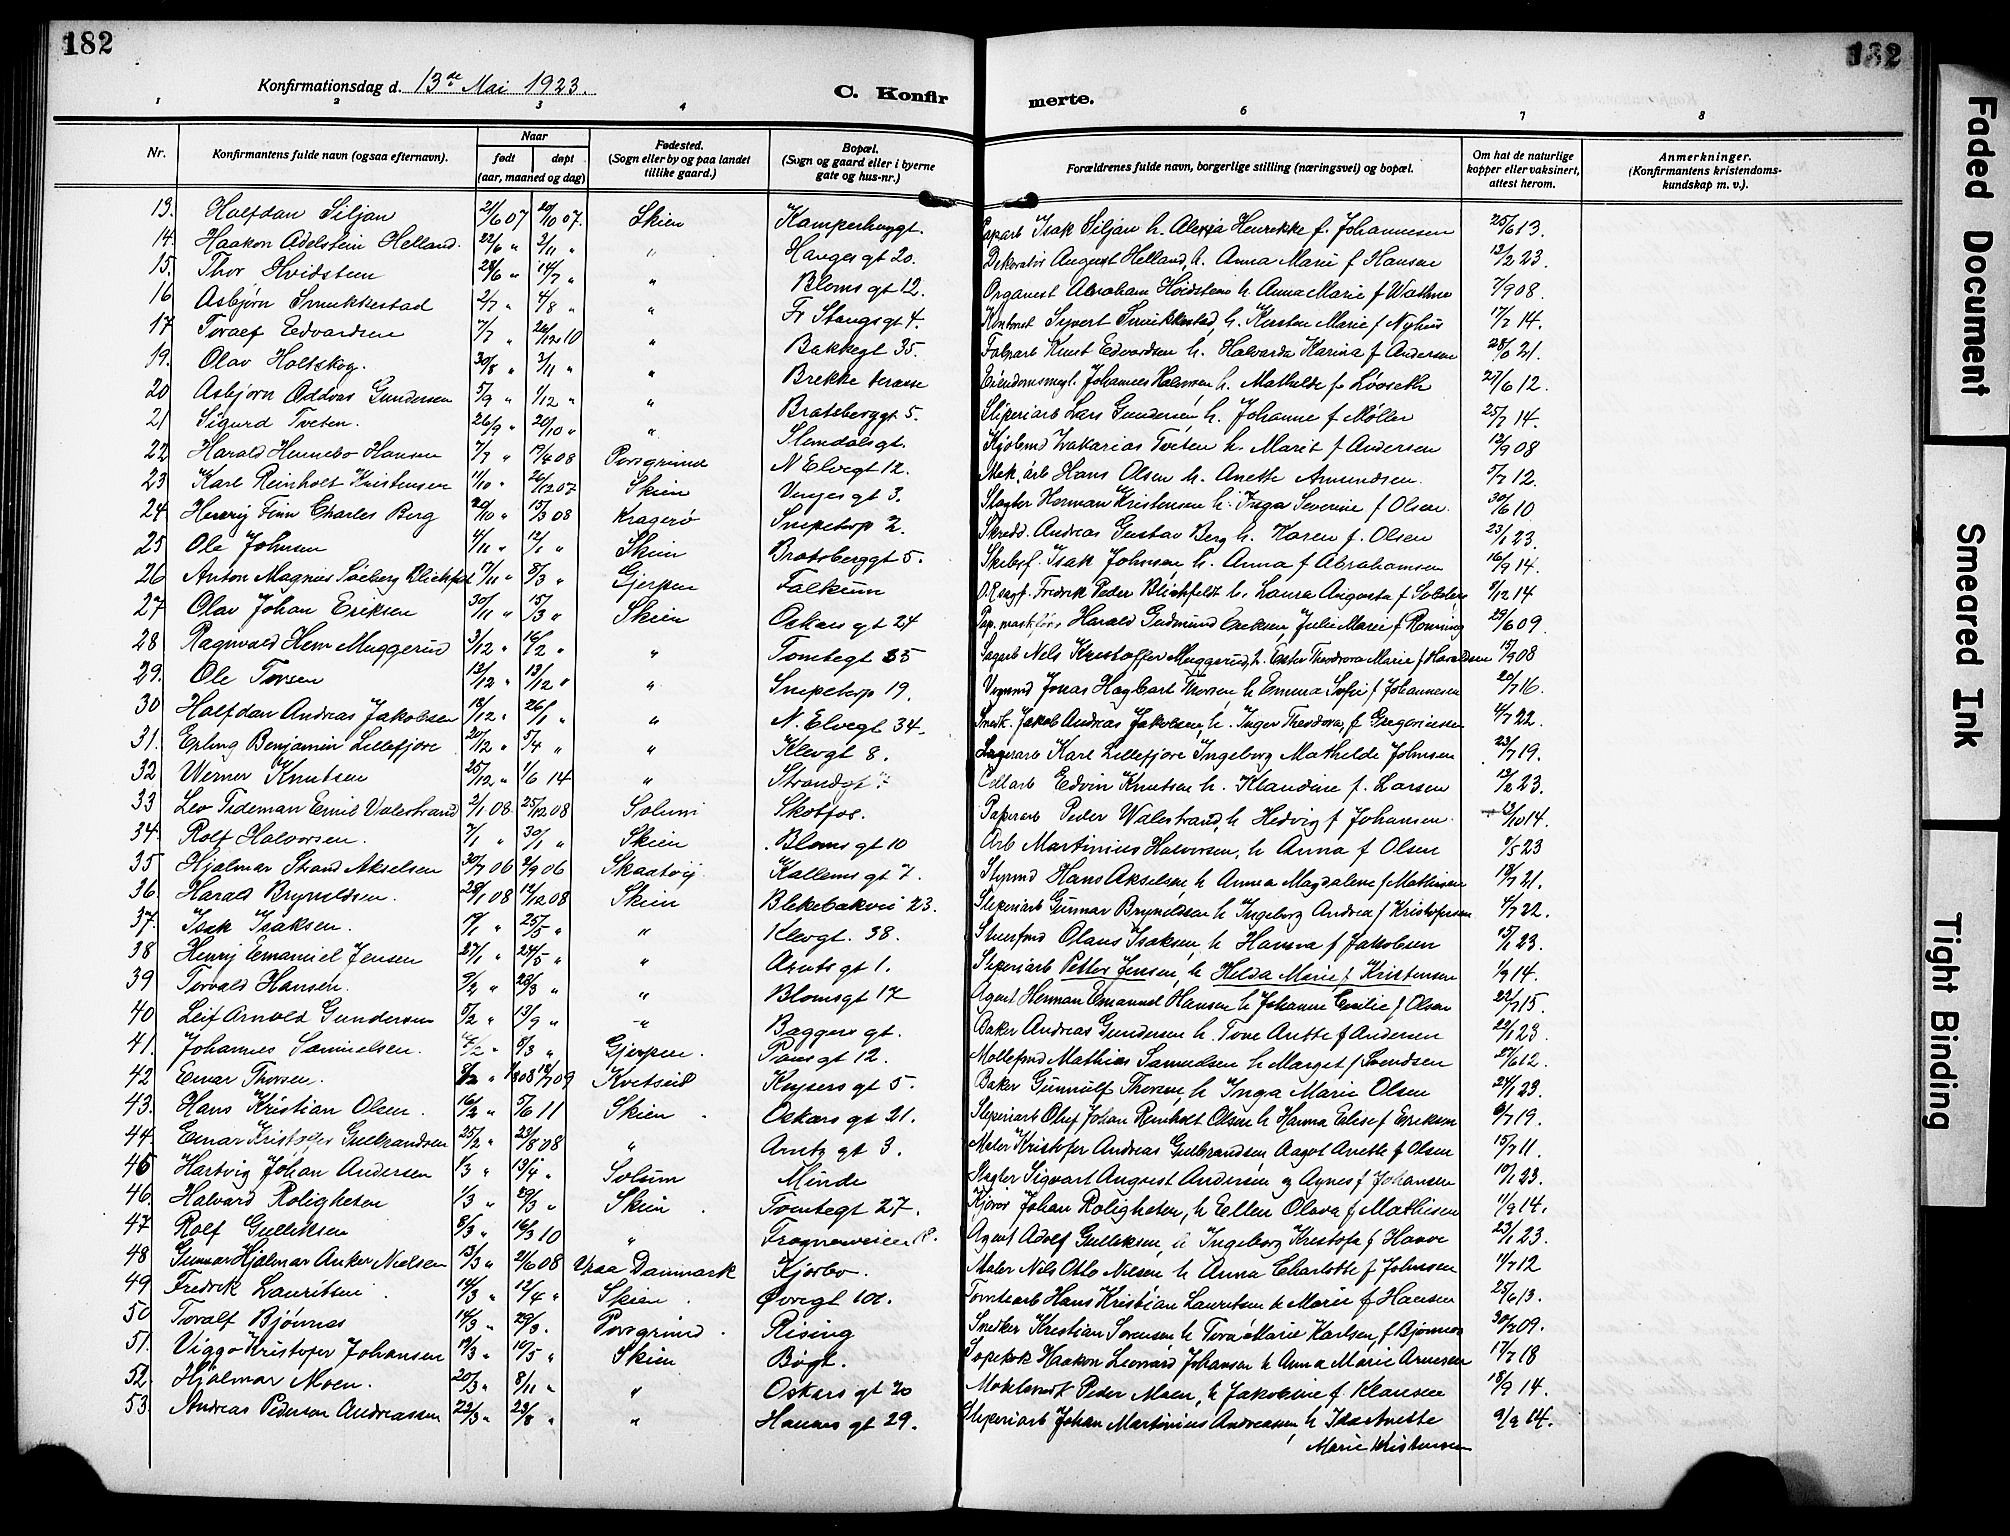 182
182
Konfirmationsdag d. 13de Mai 1923.
C. Konfirmerte.
1 2 3 4 6 7 8
Nr.
Konfirmantens fulde navn (ogsaa efternavn).
Naar
født
døpt
(aar, maaned og dag)
Fødested.
(Sogn eller by og paa landet
tillike gaard.)
Bopæl.
(Sogn og gaard eller i byerne
gate og hus-nr.)
Forældrenes fulde navn, borgerlige stilling (næringsvei) og bopæl.
Om hat de naturlige
kopper eller vaksinert,
attest herom.
Anmerkninger.
(Konfirmantens kristendoms-
kundskap m. v.).
13. Halfdan Siljan 21/6 07 20/10 07. Skien Isak Siljan h. Henrikke f. Johannesen 25/6 13.
14. Haakon Adelstein Helland. 22/6 " 2/11 " " Hauges gt 20. Dekoratør August Helland, h. Anna Marie f Hansen 13/2 23.
15. Thor Hvidsteen 28/6 " 14/7 " " Bloms gt 12. Organist Abraham Hvidsteen h. Anna Marie f 7/9 08.
16 Asbjørn Smukkestad 2/7 " 4/8 " " Fr Stangs gt 4. Syvert h. Kirsten Marie f Nyhus 17/7 14.
17 Toralf Edvardsen 7/7 " 26/12 10 " Bakkegt 35. Knut Edvardsen h. Halvarda Karina f Andersen 21.
19. Olav Holtskog. 30/8 " 3/11 " " Brekke terasse Johannes Halvorsen h. Mathilde f. Løvseth 27/6 12.
20 Asbjørn Oddvar Gundersen 5/9 " 1/12 " " Bratsberggt 5. Sliperiarb Lars Gundersen h. Johanne f Møller 25/7 14.
21 Sigurd Tveten. 26/9 " 20/10 " " Slemdalsgt. Zakarias Tveten h. Marit f Andersen 12/9 08
22 Harald Hennebo Hansen 7/7 " 17/4 08 Porsgrund N Elvegt 12. Mek. arb Hans Olsen h. Anette Amundsen. 5/7 12.
23 Karl Reinholt Kristensen 11/10 " 26/12 07 Skien gt 3. Slagter Herman Kristensen h. Inga Severine f Olsen. 30/6 10
24 Henrij Finn Charles Berg 20/10 " 15/3 08 Kragerø Snipetorp 2. Skredd. Andreas Gustav Berg h. Karen f. Olsen 23/1 23.
25 Ole Johnsen 4/11 " 12/1 " Skien Bratsberggt 5. Isak Johnsen, h. Anna f Abrahamsen 16/9 14.
26 Anton Magnus Søeberg Blichfeldt 17/11 " 8/3 " Gjerpen Falkum Fredrik Peder Blichfeldt h. Laura Augusta f 8/12 14
27 Olav Johan Eriksen 30/11 " 15/3 " Skien Oskars gt 24 Harald Gudmund Eriksen, Julie Marie f Rønning 29/6 09.
28 Ragnvald Muggerud 3/12 " 16/2 " " Tomtegt 35 Sagarb Nels Kristoffer Muggerud, h. Ester Theodora Marie f Haraldsen 15/9 08
29. Ole Torsen 13/12 " 13/12 " " Snipetorp 19. Jonas Hagbart Thorsen h Emma Sofie f Johannesen 20/7 16.
30 Halfdan Andreas Jakobsen 18/12 " 26/1 " " N. Elvegt 34. Jakob Andreas Jakobsen, h. Inger Theodora, f Gregoriusen 4/7 22.
31. Erling Benjamin Lillefjøre 20/12 " 5/4 " " Klevgt 8. Lagerarb Karl Lillefjøre Ingeborg Mathilde Johnsen 23/7 19.
32 Werner Knutsen 25/12 " 1/6 14 " Strandgt Edvin Knutsen h. Klaudine f. Larsen 13/2 23.
33 Leo Tideman Emil Valestrand 2/1 08 25/12 08 Solum Skotfos. Papirarb Peder Walestrand, h Hedvig f Johansen. 13/10 14.
34. Rolf Halvorsen. 7/1 " 30/1 " Skien Bloms gt 10 Arb Martinius Halvorsen, h Anna f Olsen 9/5 23
35 Hjalmar Strand Akselsen 30/7 06 2/9 06 Skaatøy Kallems gt 7. Styrmd Hans Akselsen, h Anna Magdalene f Mathisen 19/7 21.
36. Harald Bryneldsen. 28/1 08 12/12 08 Skien Blekebakvei 23. Sliperiarb Gunnar Bryneldsen h Ingeborg Andrea f Kristofersen 4/7 22.
37. Isak Isaksen. 17/1 " 25/5 " " Klevgt. 38. Olaus Isaksen, h Hanna f Jakobsen 15/1 23.
38 Henrij Emanuel Jensen 27/1 " 24/5 " " Arnts gt 1. Sliperiarb Petter Jensen, h Helda Marie f Kristensen 1/9 14.
39 Torvald Hansen. 9/2 " 29/3 " " Blomsgt 17 Agent Herman Emanuel Hansen h Johanne Emilie f Olsen 22/7 15.
40 Leif Arnold Gundersen 5/2 " 13/9 " " Baggers gt. Baker Andreas Gundersen h. Tone Anette f Andersen 22/1 23.
41. Johannes Samuelsen. 7/2 " 8/3 " Gjerpen. gt 12. Møllefmd Mathias Samuelsen h Marget f Svendsen 27/6 12.
42 Einar Thorsen. 8/2 " 18/7 09 Kvitseid Kaysers gt 5. Baker Gunnulf Thorsen, h Inga Marie Olsen 24/1 23.
43. Hans Kristian Olsen. 16/2 " 5/6 11 Skien Oskars gt 21. Sliperiarb Oluf Johan Reinholt Olsen h Hanna Elise f Eriksen 6/7 19.
44. Einar Kristofer Gulbrandsen 25/2 " 23/8 08 " Arntz gt 3. Maler Kristofer Andreas Gulbrandsen Aagot Anette f Olsen 15/7 11.
45 Hartvig Johan Andersen 1/3 " 13/4 " Solum Minde Slagter Sigvart August Andersen og Agnes f Johansen 10/1 23.
46. Halvard Roligheten 1/3 " 29/3 " Skien Tomtegt 27. Johan Roligheten, h Ellen Olava f Mathisen 11/9 14.
47 Rolf Gulliksen 8/3 " 16/3 10 " Frognerveien Agent Adolf Gulliksen, h Ingeborg Kristofa f Haave 23/1 23.
48 Gunnar Hjalmar Anker Nielsen 13/3 " 21/6 08 Danmark Kjørbo. Maler Nils Otto Nilsen h Anna Charlotte f Johnsen 11/7 12
49 Fredrik Lauritsen 14/3 " 12/4 " Skien. Øvregt 101. Tomtearb Hans Kristian Lauritsen h Marie f Hansen 25/6 13.
50 Toralf Bjørnnes 14/3 " 29/3. Porsgrund. Rising Snedker Kristian Sørensen h Tora Marie Karlsen f Bjønnes 30/7 09.
51. Viggo Kristofer Johansen 19/3 " 10/5 " Skien Bøgt. Haakon Leonard Johansen h Anna Marie Arnesen 17/7 18
52. Hjalmar Moen. 20/3 " 8/11 " " Oskars gt 20 Peder Moen, h Jakobine f Klausen 18/9 14.
53. Andreas Pederson Andreassen 22/3 " 23/8 " " Hannes gt 29. Sliperiarb Johan Martinius Andreassen, h Anette 9/9 14.
Marie Kristensen
Faded Document
Smeared Ink
Tight Binding